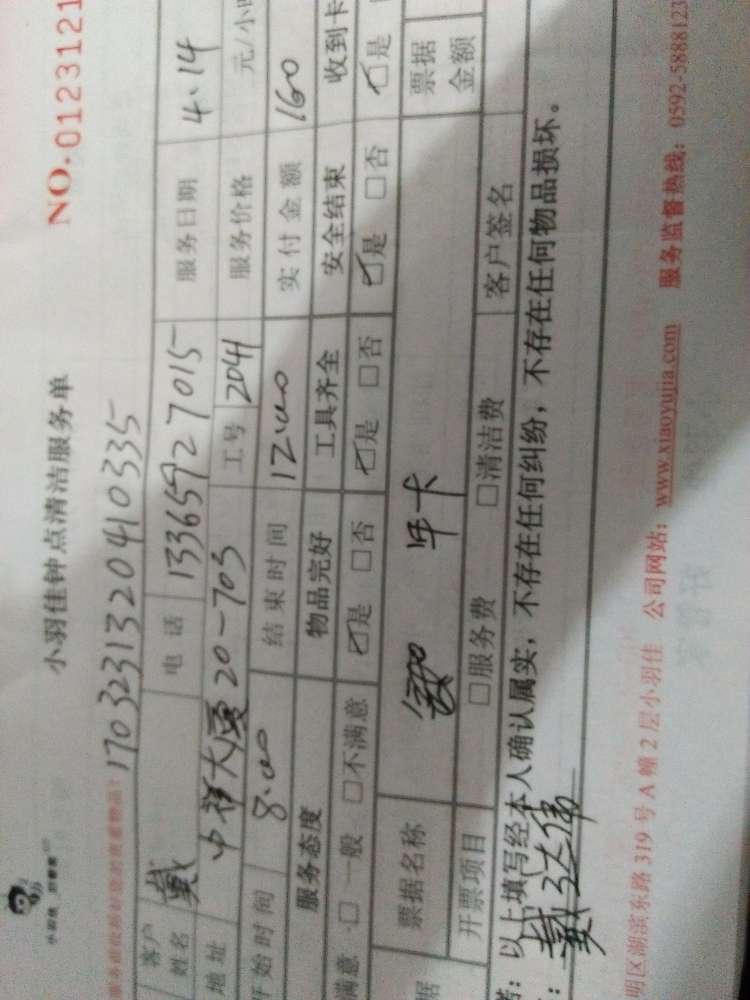 小羽佳钟点清洁服务单 NO.0123121
170323132041 0335
客户姓名 戴 电话 13365927015 服务日期 4.14
地址 中祥大厦20-703 工号 2041 服务价格 元/小
开始时间 8:00 结束时间 12:00 实付金额 160
服务态度 物品完好 工具齐全 安全结束 收到卡
满意 □一般 □不满意 ☑是 □否 ☑是 □否 ☑是 □否 ☑是
票据名称 年卡 票据金额
开票项目 □服务费 □清洁费 客户签名
以上填写经本人确认属实，不存在任何纠纷，不存在任何物品损坏。
戴达伟
明区湖滨东路319号A幢2层小羽佳 公司网站：www.xiaoyujia.com 服务监督热线：0592-5888123